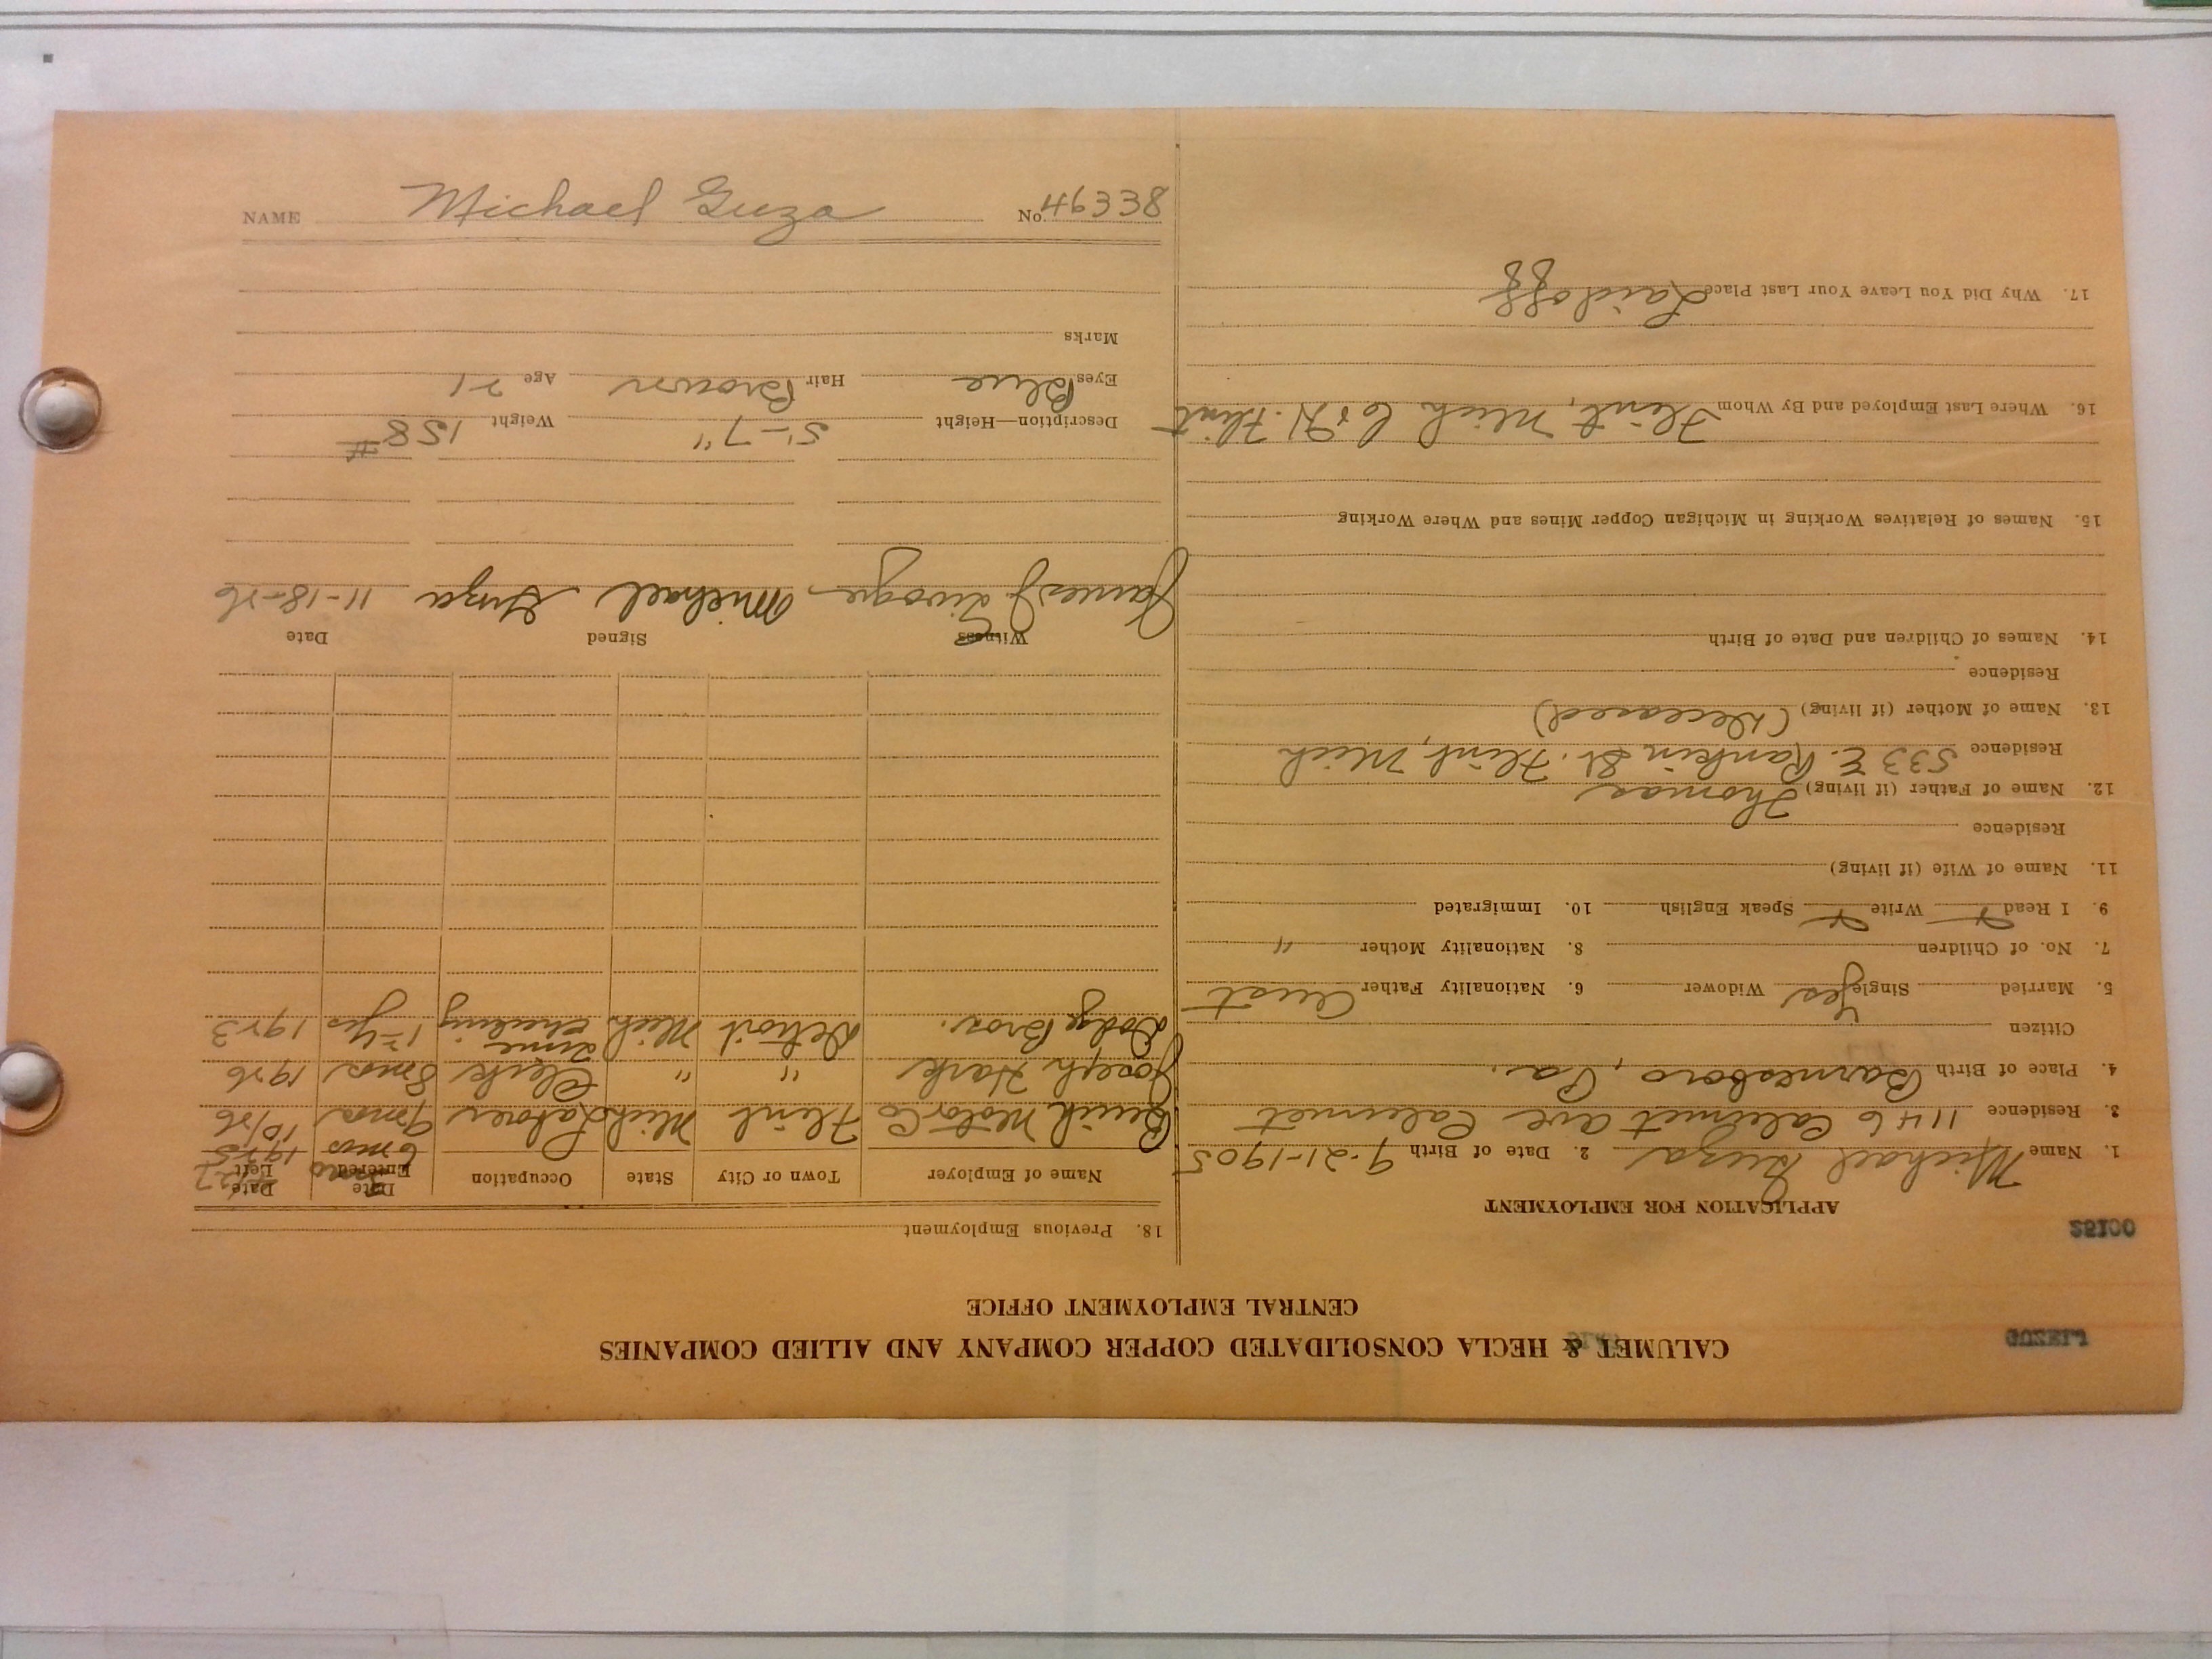 NAME Michael Guza No. 46338
CALUMET & HECLA CONSOLIDATED COPPER COMPANY AND ALLIED COMPANIES
CENTRAL EMPLOYMENT OFFICE
APPLICATION FOR EMPLOYMENT
1. Name Michael Guza 2. Date of Birth 9-21-1905
3. Residence 1146 Calumet ave Calumet
4. Place of Birth Barnesboro, Pa.
Citizen
5. Married Single Yes Widower 6. Nationality Father Aust
7. No. of Children 8. Nationality Mother "
9. I Read Write Speak English 10. Immigrated
11. Name of Wife (if living)
Residence
12. Name of Father (if living) Thomas
Residence 533 E. Rankin St. Flint, Mich
13. Name of Mother (if living) (Deceased)
Residence
14. Names of Children and Date of Birth
15. Names of Relatives Working in Michigan Copper Mines and Where Working
16. Where Last Employed and By Whom Flint, Mich
17. Why Did You Leave Your Last Place Laid off
18. Previous Employment
Name of Employer Town or City State Occupation Date Entered Date Left
6 mos 1925
Buick Motor Co Flint Mich Laborer 9 mos 10/26
Joseph Hark " " Clerk 8 mos 1926
Dodge Bros. Detroit Mich time checking 1 1923
Witness Signed Date
James J. Michael Guza 11-18-26
Description—Height 5'-7" Weight 158 #
Eyes Blue Hair Brown Age 21
Marks